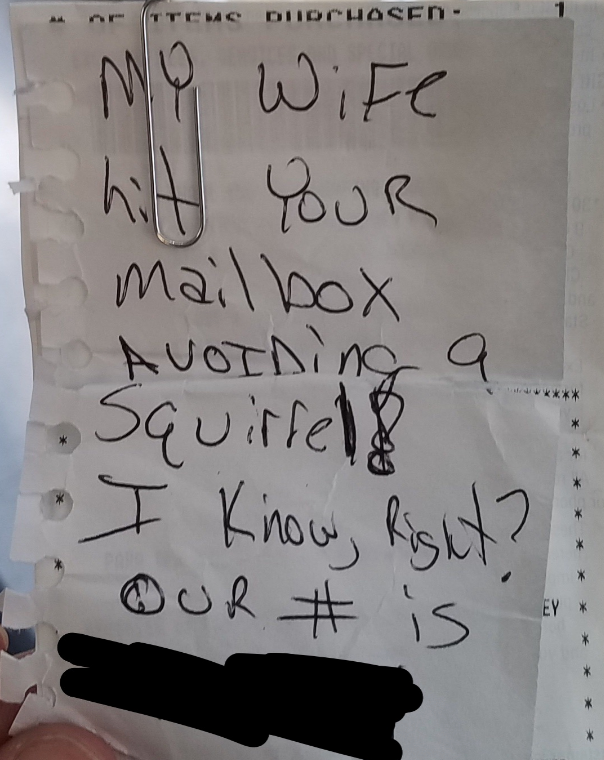 # OF ITEMS PURCHASED: 1
MY WiFe
hit YOUR
mailbox
AVOIDing a
Squirrel!
I Know, Right?
OUR # is
EY